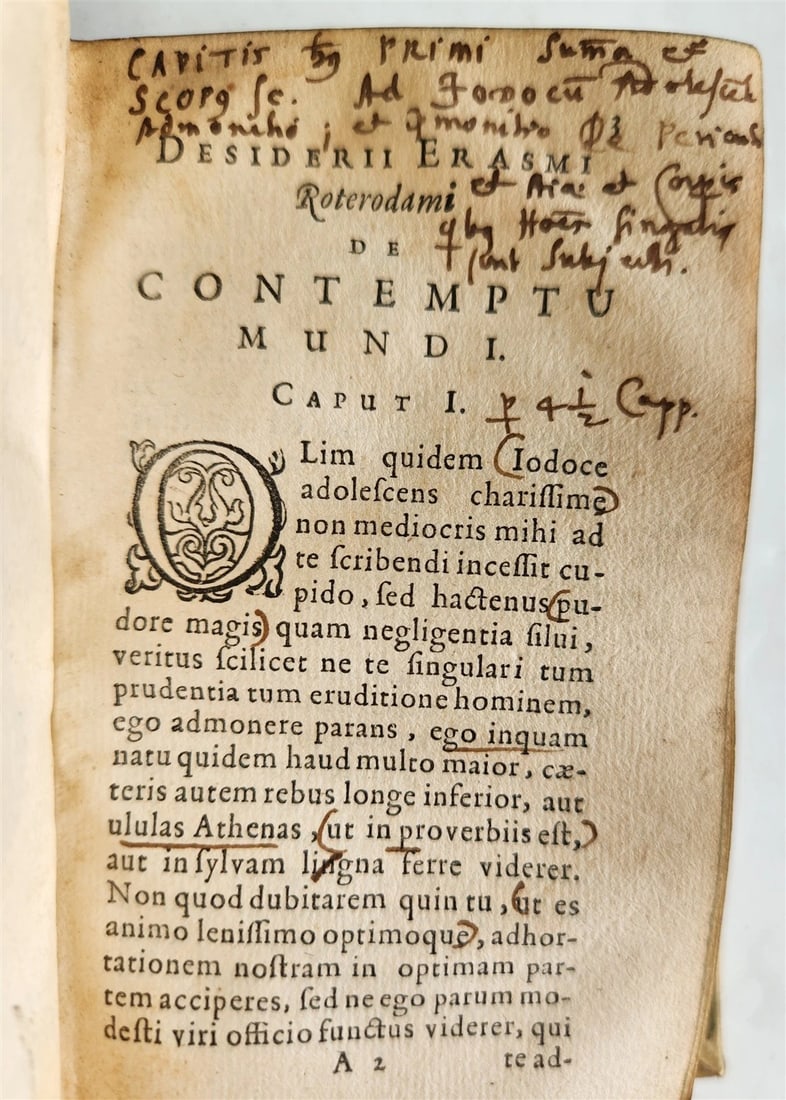 CAPITIS PRIMI Suma et
Scopq sc. Ad Jodocū Adolescēt
Admonitio ; et
DESIDERII ERASMI
Roterodami
et Aiæ et Corpis
qbq Hoēs singulis
sunt Subjecti.
DE
CONTEMPTU
MUNDI I.
CAPUT I.
Capp.
OLim quidem Iodoce
adoleſcens chariſſime
non mediocris mihi ad
te ſcribendi inceſſit cu-
pido, ſed hactenus pu-
dore magis quam negligentia ſilui,
veritus ſcilicet ne te ſingulari tum
prudentia tum eruditione hominem,
ego admonere parans, ego inquam
natu quidem haud multo maior, cæ-
teris autem rebus longe inferior, aut
ululas Athenas, ut in proverbiis eſt,
aut in ſylvam lingna ferre viderer.
Non quod dubitarem quin tu, ut es
animo leniſſimo optimoque, adhor-
tationem noſtram in optimam par-
tem acciperes, ſed ne ego parum mo-
deſti viri officio functus viderer, qui
A 2 te ad-